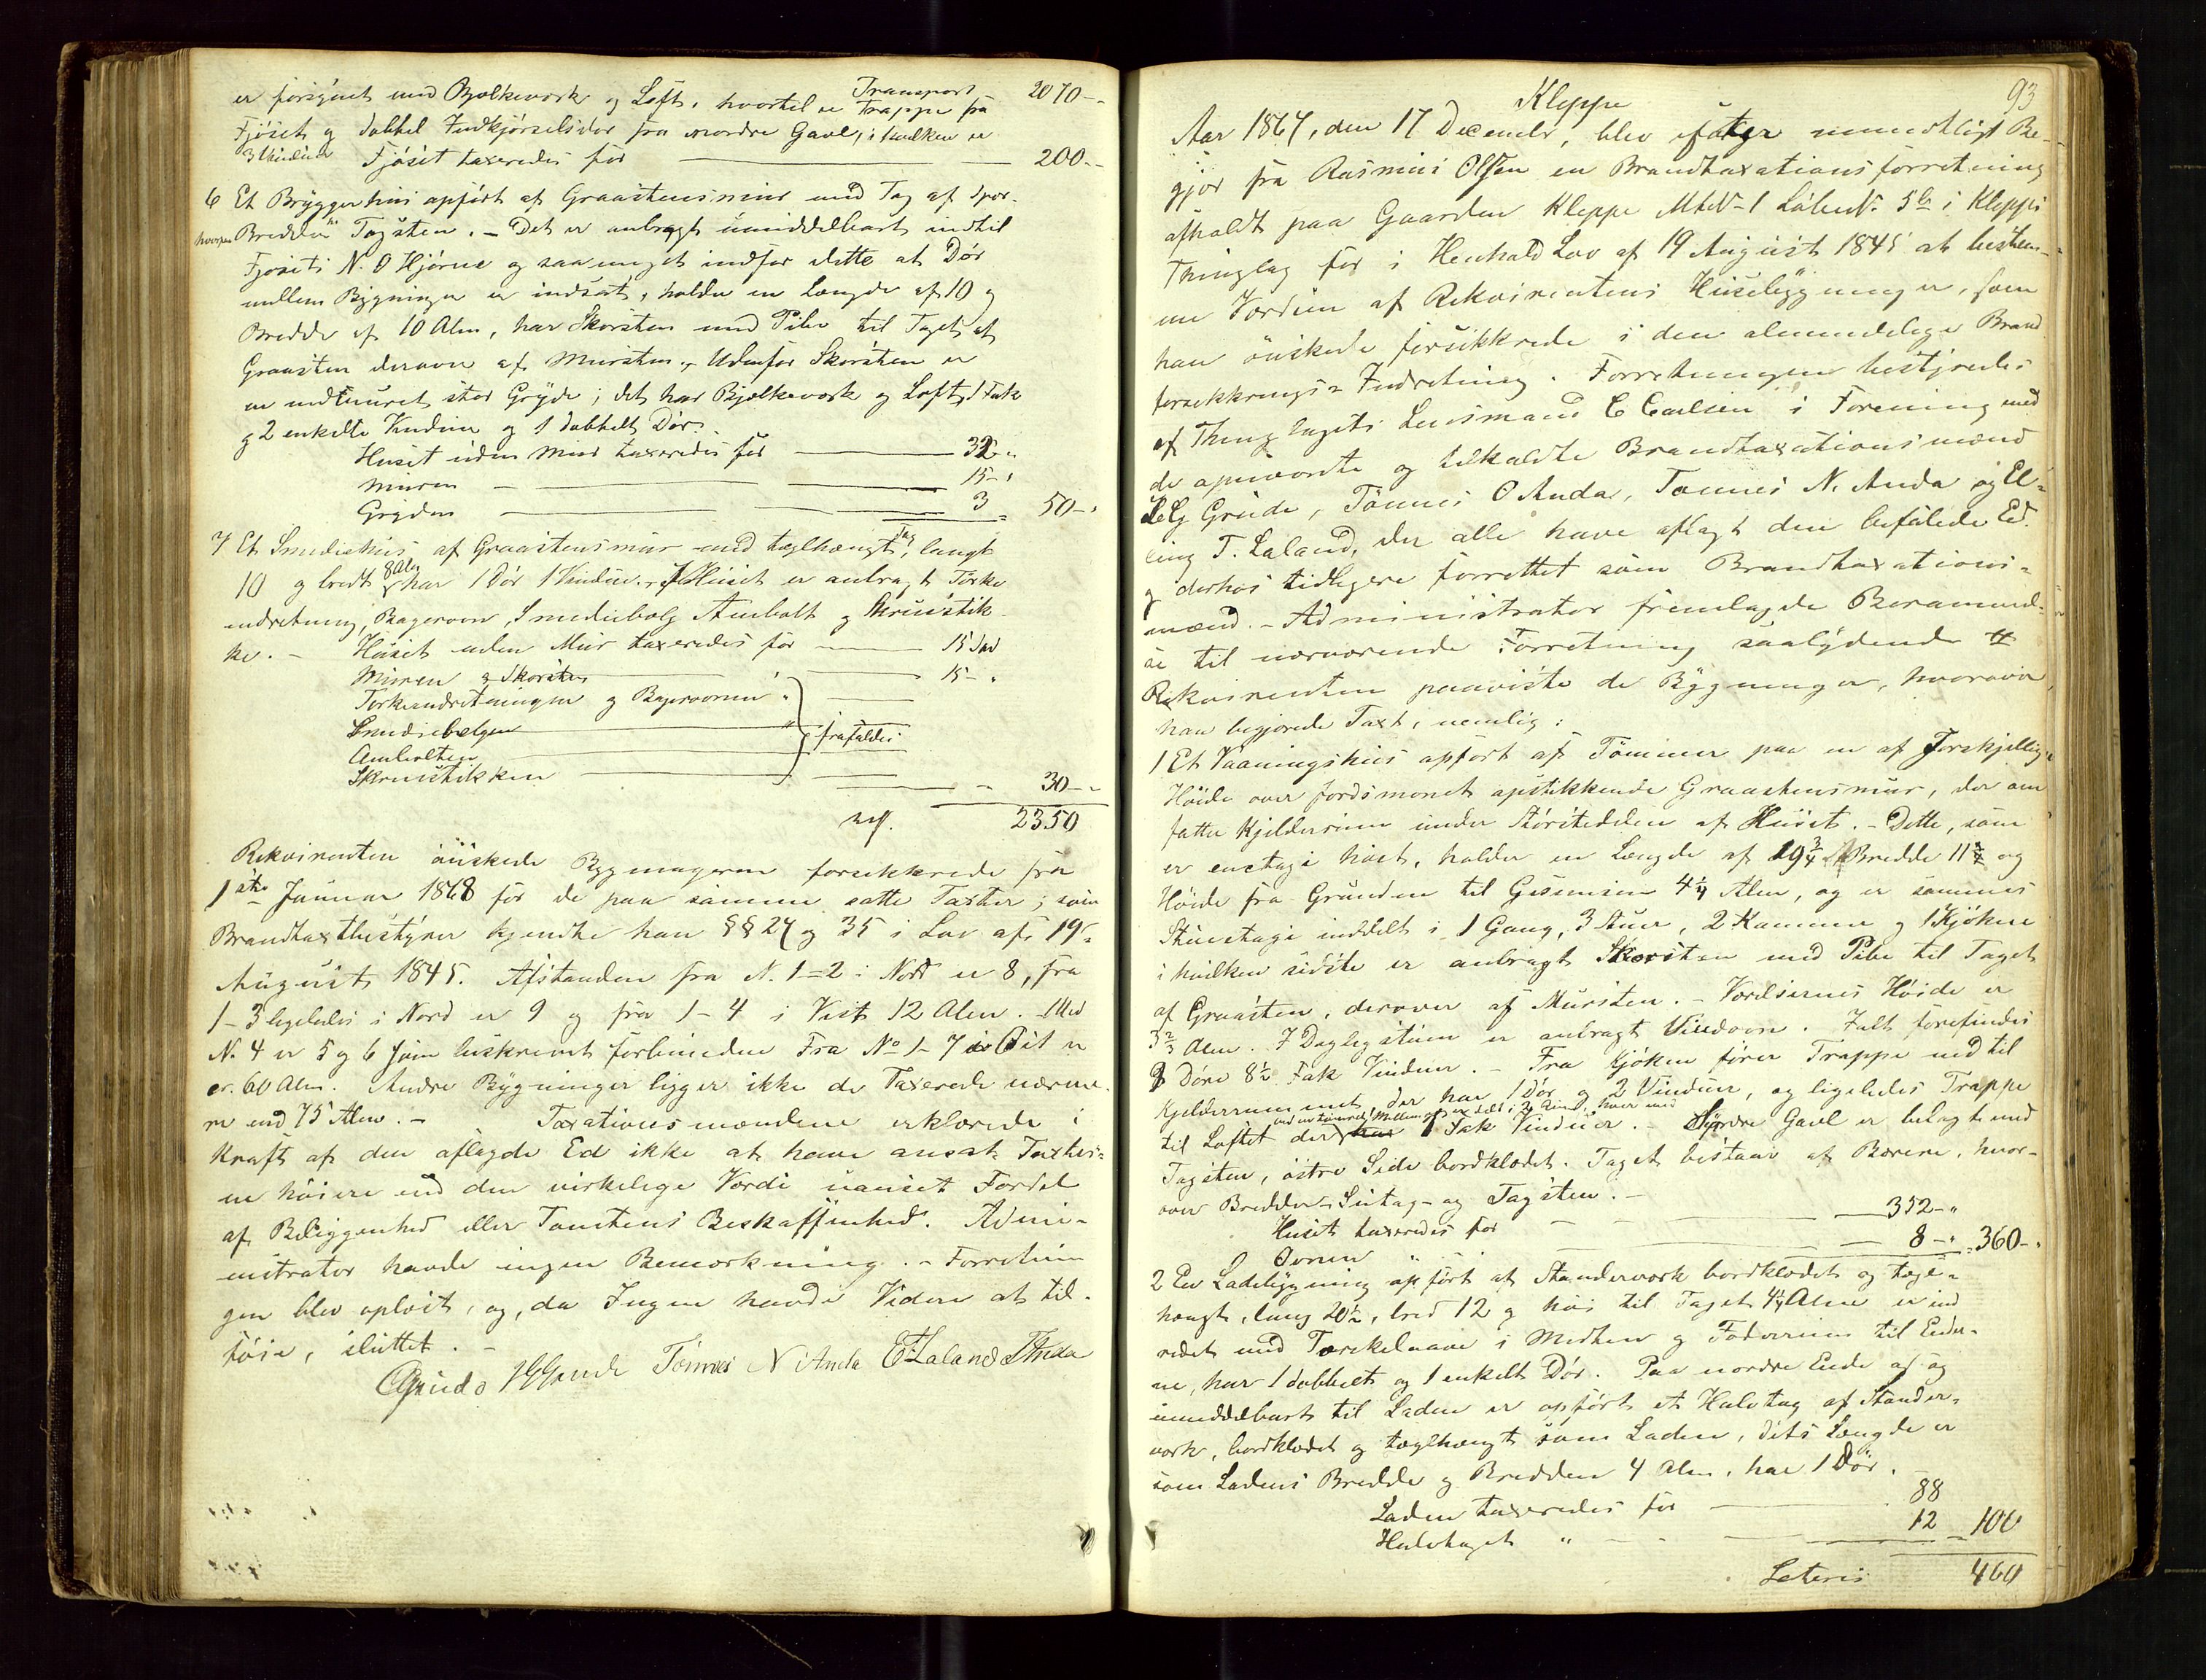 Transport 2070-"
er forsynet med Bjælkeværk og Loft, hvortil er Trappe fra
Fjöset og dobbel Indkjörselsdör fra nordre Gavl, i hvilken er
3 Vinduer Fjöset taxeredes for 200-"
6 Et Bryggerhus opfört af Graastensmur med Tag af Spær-
hvorpaa Bredder Tagsten. - Det er anbragt umiddelbart indtil
Fjösets N. O Hjörne og saameget indfor dette at Dör
mellem Bygninger er indsat, holder en Længde af 10 og
Bredde af 10 Alen, har Skorsten med Pibe til Taget af
Graasten derover af Mursten. - Udenfor Skorsten er
en indmuret stor Gryde; det har Bjælkeværk og Loft, 1 Fak
og 2 enkelte Vinduer og 1 dobbelt Dör.
Huset uden Mur taxeredes for 32 "
Muren 15 "
Gryden 3 = 50-"
7 Et Smediehus af Graastensmur med teglhængt Tag, langt
10 og bredt 8 Alen har 1 Dör 1 Vindue. I Huset er anbragt Törke
indretning, Bagerovn, Smediebælg Ambolt og Skruestik-
ke. - Huset uden Mur taxeredes for 15 Spd
Muren & Skorsten 15 - "
Törkeindretningen og Bagerovnen "
Smediebælgen " frafaldes
Ambolten
Skruestikken
30-"
2350
Rekvirenten önskede Bygningerne forsikkrede fra
1ste Januar 1868 for de paa samme satte Taxter; som
Brandtaxtbestyrer kjendte han §§ 27 og 35 i Lov af 19-
August 1845. Afstanden fra N. 1-2 i Nord er 8, fra
1-3 ligeledes i Nord er 9 og fra 1-4 i Vest 12 Alen. Med
N. 4 er 5 og 6 som beskrevet forbunden Fra No 1-7 i Öst er
cr. 60 Alen. Andre Bygninger ligger ikke de Taxerede nærme-
re end 75 Alen. - Taxationsmændene erklærede i
Kraft af den aflagde Ed ikke at have ansat Taxter-
ne höiere end den virkelige Værdi uanset Fordel
af Beliggenhed eller Tomtens Beskaffenhed. Admi-
nistrator havde ingen Bemærkning. - Forretnin
gen blev oplæst, og, da Ingen havde Videre at til-
föie, sluttet. -
Tönnes N Anda E T Laland
93
Kleppe
Aar 1867, den 17 December, blev efter mundtligt Be-
gjær fra Rasmus Olsen en Brandtaxationsforretning
afholdt paa Gaarden Kleppe Mt. N- 1 Löbe N. 5b i Klepps
Thinglag for i Henhold Lov af 19 August 1845 at bestem-
me Værdien af Rekvirentens Husebygninger, som
han önskede forsikkrede i den almindelige Brand
forsikkrings-Indretning. Forretningen bestyredes
af Thinglagets Lensmand i Forening med
de opnævnte og tilkaldte Brandtaxationsmænd
Grude, Tönnes O Anda, Tönnes N. Anda og El-
ling T. Laland, der alle have aflagt den befalede Ed
og derhos tidligere forrettet som Brandtaxations-
mænd. - Administrator fremlagde Berammel-
se til nærværende Forretning saalydende
Rekvirenten paaviste de Bygninger, hvorover
han begjerede Taxt, nemlig:
1 Et Vaaningshus opfört af Tömmer paa en af forskjellig
Höide over Jordsmonet opstikkende Graastensmur, der om
fatter Kjelderrum under Störstedelen af Huset. - Dette, som
er enetages höit, holder en Længde af 19 3/4 Bredde 11 3/4 og
Höide fra Grunden til Gesimsen 4 1/4 Alen, og er sammes
Stueetage inddelt i 1 Gang, 3 Stuer, 2 Kammere og 1 Kjökken
i hvilken sidste er anbragt Skorsten med Pibe til Taget
af Graasten, derover af Mursten. - Værelsernes Höide er
3 2/3 Alen. I Dagligstuen er anbragt Vindovn. Ialt forefindes
9 Döre 8 1/2 Fak Vinduer. - Fra Kjöken förer Trappe ned til
Kjelderrummet, der har 1 Dör og 2 Vinduer, og ligeledes Trappe
til Loftet der 1 Fak Vinduer. - Söndre Gavl er belagt med
Tagsten, östre Side bordklædet. Taget bestaar af Bærere, hvor-
over Bredder- Sutag- og Tagsten. -
Huset taxeredes for 352-"
Ovnen " 8-" = 360-"
2 En Ladebygning opfört af Standerværk bordklædet og tægl-
hængt, lang 20 1/2, bred 12 og höi til Taget 4 1/4 Alen er ind
redet med Tærskelaave i Midten og Foderrum til Ender-
ne, har 1 dobbelt og 1 enkelt Dör. Paa nordre Ende af og
umiddelbart til Laden er opfört et Halvtag af Stander-
værk, bordklædet og tæglhængt som Laden, dets Længde er
som Ladens Bredde og Bredden 4 Alen, har 1 Dör.
Laden taxeredes for 88
Halvtaget " 12 100
Lateris 460